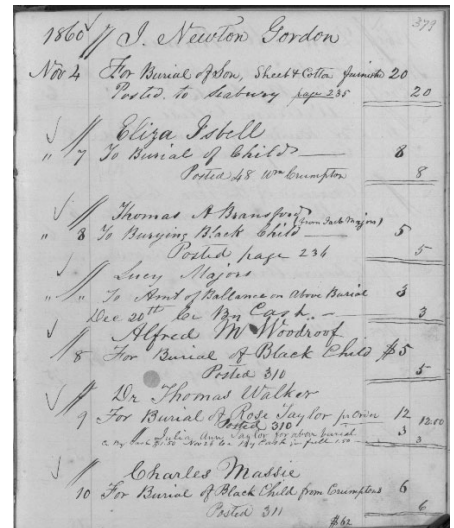 379
1860 // J. Newton Gordon
Nov 4 For Burial of Son, Sheet & Cotton furnish 20
Posted to Seabury page 235 20
// Eliza Isbell
" 7 To Burial of Child — 8
Posted 48 Wm Crumpton 8
// Thomas A Bransford (from Jack Majors)
" 8 To Burying Black Child — 5
Posted page 234 5
// Lucy Majors
" " To Amt of Ballance on Above Burial 3
Dec 20th Cr By Cash. — 3
// Alfred M Woodroof
8 For Burial of Black Child $5
Posted 310 5
// Dr Thomas Walker
9 For Burial of Rose Taylor 12 12.00
Posted 310
Julia Ann Taylor for above burial 3
By Cash 1.50 Nov 28 Cr By Cash in full 1.50 3
// Charles Massie
10 For Burial of Black Child from Crumptons 6
Posted 311 6
$62